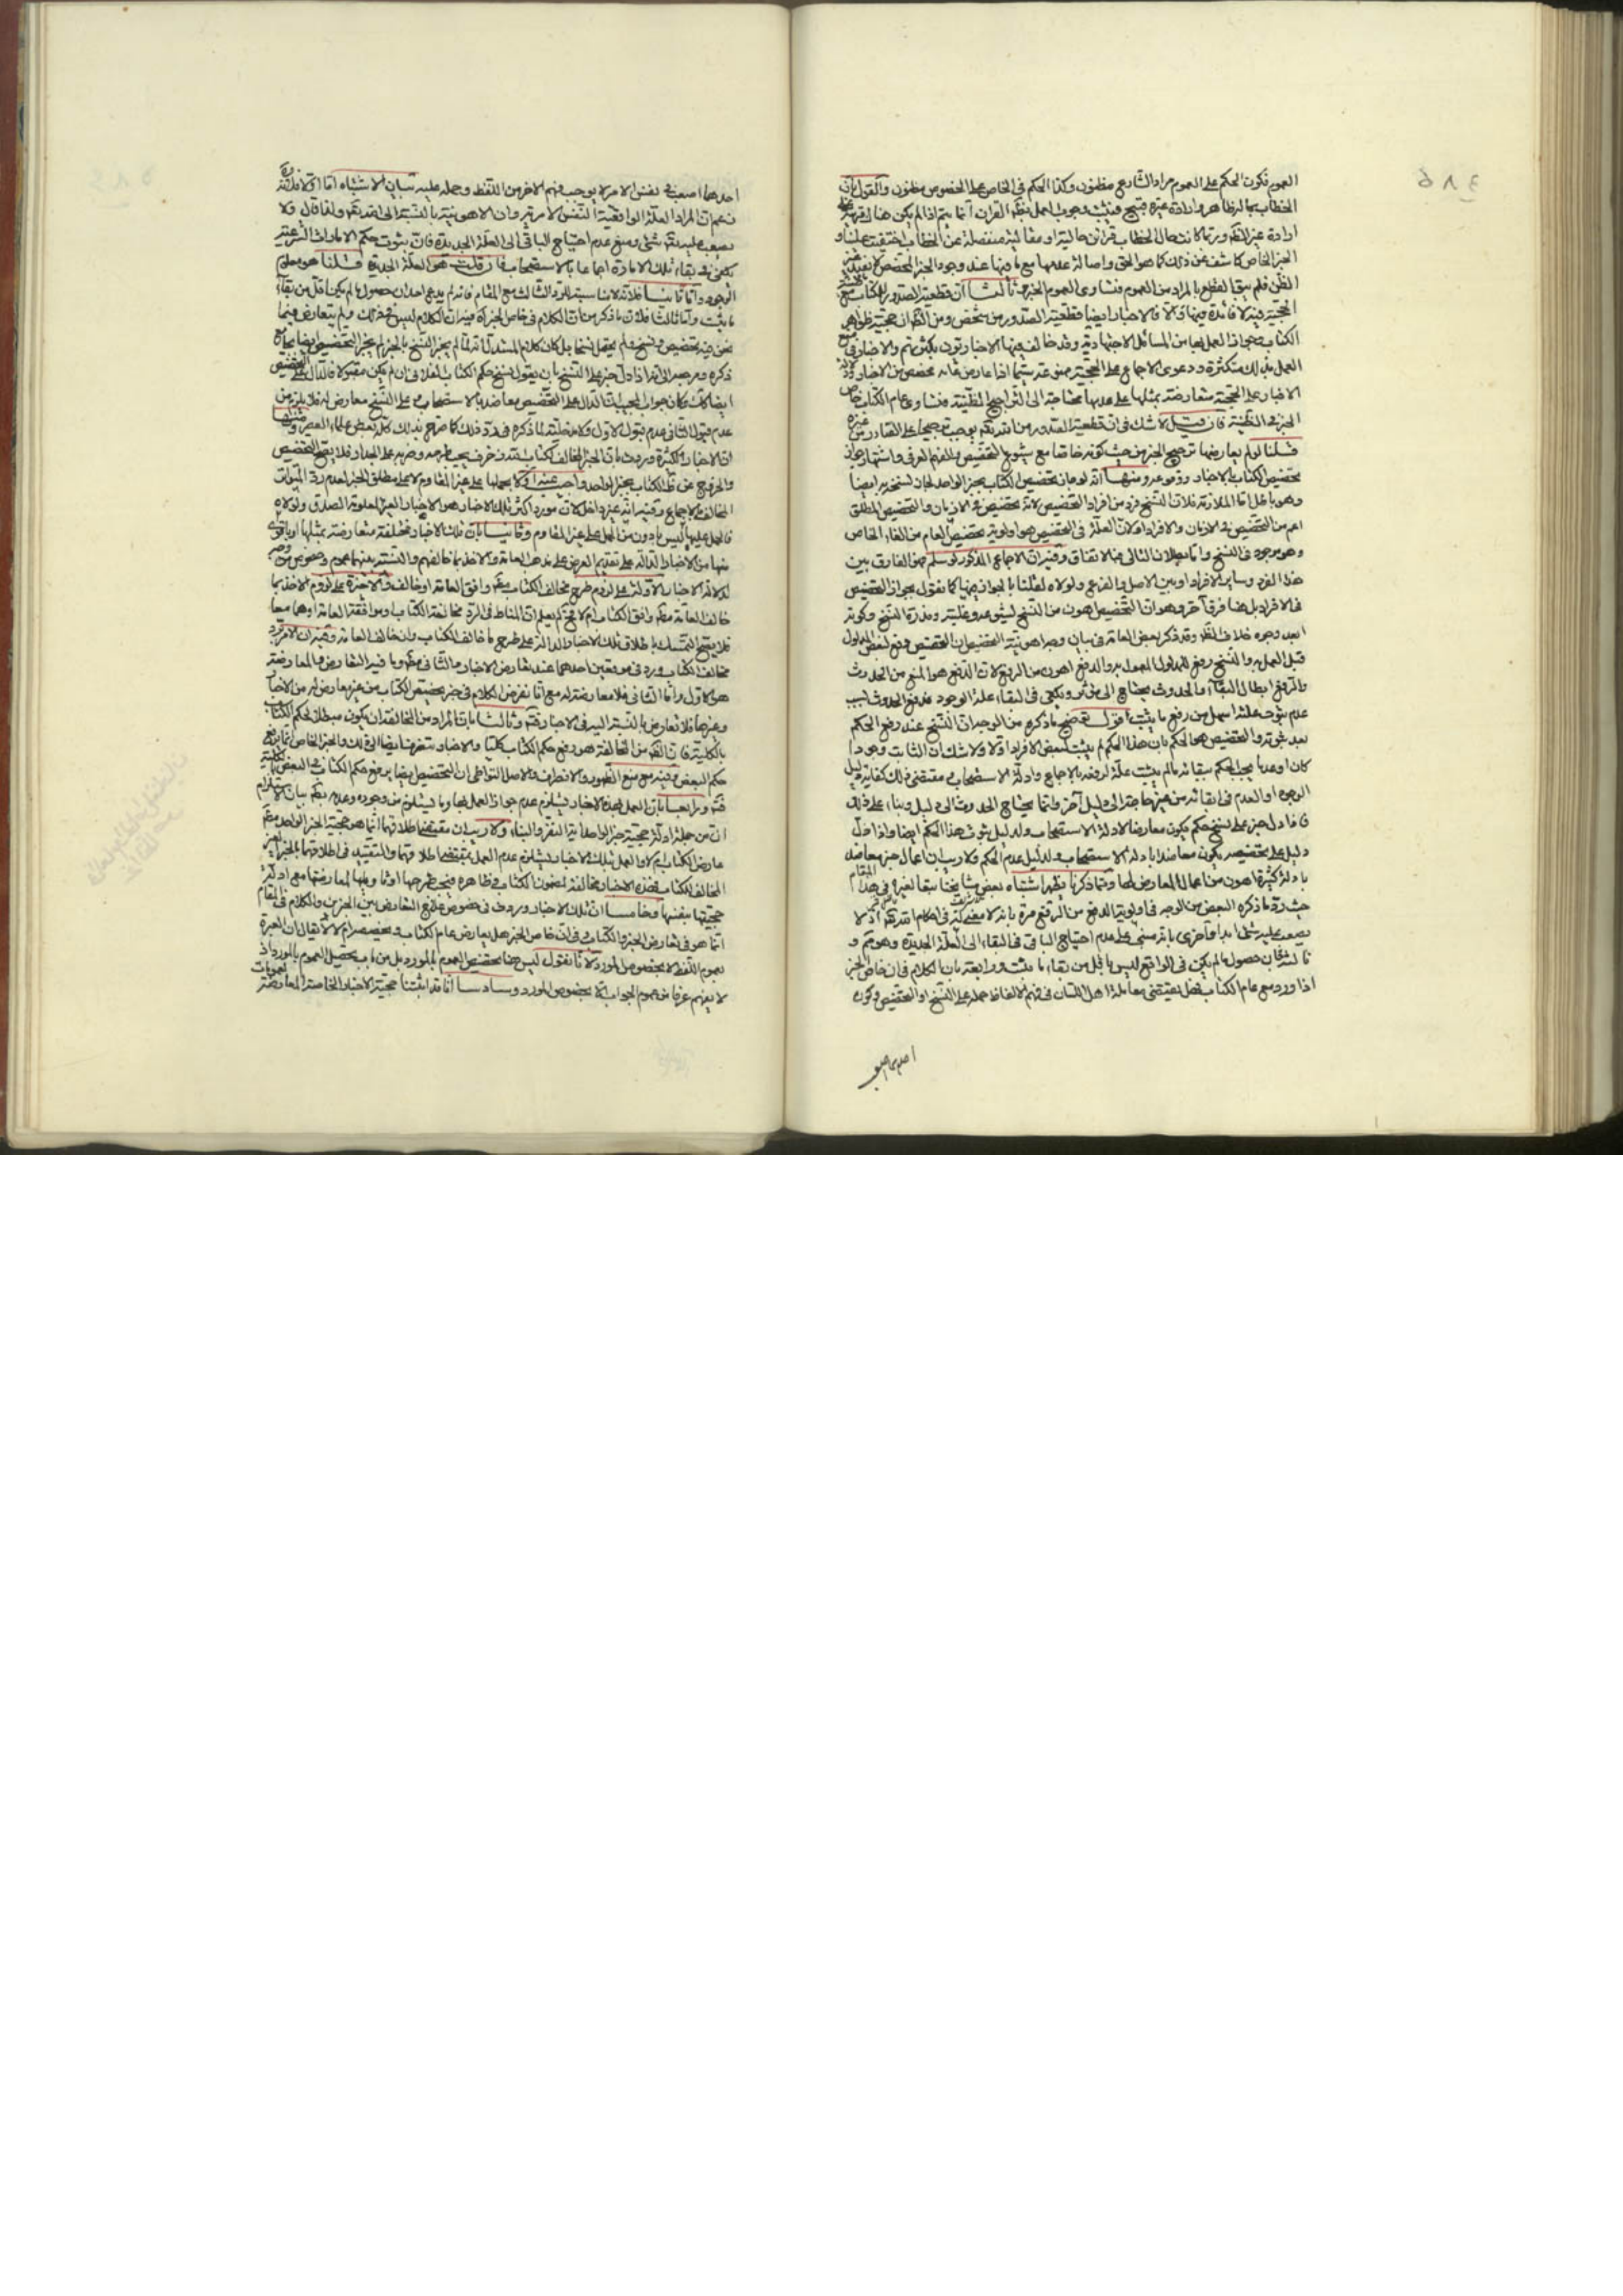 العموم فيكون الحكم على العموم مراد الشارع مظنون وكذا الحكم في الخاص على الخصوص مظنون والقول بان
الخطاب بما له ظاهر وارادة غيره قبيح فيثبت وجوب العمل بظواهر القران انما يتم اذا لم يكن هناك قرينة على
ارادة غير الظاهر وربما كانت حال الخطاب قرائن حالية او مقالية منفصلة عن الخطاب اختفيت علينا و
الخبر الخاص كاشف عن ذلك كما هو الحق واصالة عدمها مع ما فيها عند وجود الخبر المخصص لا يفيد
الظن فلم يبق القطع بالمراد من العموم فتساوى العموم الخبر وثالثا ان قطعية الصدور للكتاب مع
الحجية فيه لا فائدة فيها اولا فالاخبار ايضا قطعية الصدور من شخص ومن الظان حجية ظواهر
الكتاب وجواز العمل بها من المسائل الاجتهادية وقد خالف فيها الاخباريون بكثرتهم والاخبار في منع
العمل بذلك متكثرة ودعوى الاجماع على الحجية ممنوعة سيما اذا عارض فانه مخصص من الاخبار ودلالة
الاخبار على الحجية متعارضة بمثلها على عدمها محتاجة الى التراجيح الظنية فتساوى عام الكتاب خاص
الخبر في الظنية فان قيل لا شك في ان قطعية الصدور من الله تعالى يوجب ترجيحا على الصادر من غيره
قلنا لو لم يعارضها ترجيح الخبر من حيث كونه خاصا مع شيوع التخصيص والفهم العرفي واشتهار جواز
تخصيص الكتاب بالاخبار ووقوعه ومنها انه لو جاز تخصيص الكتاب بخبر الواحد لجاز نسخه به ايضا
وهو باطل اما الملازمة فلان النسخ فرد من افراد التخصيص لانه تخصيص في الازمان والتخصيص المطلق
اعم من التخصيص في الازمان والافراد ولان العلة في التخصيص هو اولوية تخصيص العام من الغاء الخاص
وهو موجود في النسخ واما بطلان التالي فبالاتفاق وفيه ان الاجماع المذكور لو سلم هو الفارق بين
هذا الفرد وساير الافراد او بين الاصل والفرع ولولاه لقلنا بالجواز فيها كما نقول بجواز التخصيص
في الافراد بل هنا فرق اخر وهو ان التخصيص اهون من النسخ لشيوعه وغلبته وندرة النسخ وكونه
ابعد وجوه خلاف الظاهر وقد ذكر بعض العامة في بيان وجه اهونية التخصيص ان التخصيص دفع لبعض المدلول
قبل العمل به والنسخ رفع للمدلول المعمول به والدفع اهون من الرفع لان الدفع هو المنع من الحدوث
والرفع ابطال البقاء والحدوث يحتاج الى مؤثر ويكفي في البقاء علة الوجود فدفع الحدوث بسبب
عدم ثبوت علته اسهل من رفع ما يثبت اقول توضيح ما ذكره من الوجه ان النسخ عند رفع الحكم
بعد ثبوته والتخصيص هو الحكم بان هذا الحكم لم يثبت لبعض الافراد اولا ولا شك ان الثابت وجودا
كان او عدما يجب الحكم ببقائه ما لم يثبت علة لرفعه بالاجماع وادلة الاستصحاب فمقتضى ذلك كفاية دليل
الوجود او العدم في ابقائه من غير حاجة الى دليل اخر وانما يحتاج الحدوث الى دليل وبناء على ذلك
فاذا دل خبر على نسخ حكم يكون معارضا لادلة الاستصحاب ولدليل ثبوت هذا الحكم ايضا واذا دل
دليل على تخصيصه يكون معاضدا بادلة الاستصحاب ولدليل عدم الحكم ولا ريب ان اعمال خبر معاضد
بادلة كثيرة اهون من اعمال المعارض لها ومما ذكرنا يظهر اشتباه بعض مشايخنا تبعا لغيره في هذا المقام
حيث رد ما ذكره البعض من الوجه في اولوية الدفع من الرفع مرة بانه لا معنى له في احكام الله تعالى اذ لا
يصعب عليه شئ ابدا واخرى بانه مبني على عدم احتياج الباقي في البقاء الى العلة الجديدة وهو مم و
ثالثة بان حصول ما لم يكن في الواقع ليس باقل من بقاء ما يثبت ورابعة بان الكلام في ان خاص الخبر
اذا ورد مع عام الكتاب فهل يقتضي معاملة اهل اللسان في فهم الالفاظ حمله على النسخ او التخصيص وكون
احدهما اصعب
احدهما اصعب في نفس الامر لا يوجب فهم الاخر من اللفظ وحمله عليه بيان الاشتباه اما اولا فلانه
زعم ان المراد العلة الواقعية النفس الامرية وان الاهونية بالنسبة الى الله تعالى ولذا قال ولا
يصعب عليه تعالى شئ ومنع عدم احتياج الباقي الى العلة الجديدة فان ثبوت حكم الامارات الشرعية
يكفي في بقاء تلك الامارة اجماعا بالاستصحاب فان قلت هو العلة الجديدة قلنا هو معلوم
الوجود واما ثانيا فلانه لا مناسبة للرد الثالث مع المقام فانه لم يدع احد ان حصول ما لم يكن اقل من بقاء
ما يثبت واما ثالثا فلان ما ذكر من ان الكلام في خاص الخبر اه فيه ان الكلام ليس في ذلك ولم يتعارض فيما
نحن فيه تخصيص ونسخ ولم يحتمل نسخا بل كان كلام المستدل انه لما لم يجز النسخ بالخبر لم يجز التخصيص ايضا بجامع
ذكره ومرجعه الى انه اذا دل خبر على النسخ بان يقول نسخ حكم الكتاب الفلاني ان لم يكن مقبولا فالدال على التخصيص
ايضا كذلك وكان جواب المجيب ان الدال على التخصيص معاضد بالاستصحاب وعلى النسخ معارض له فلا يلزم من
عدم قبول الثاني عدم قبول الاول ولا مدخلية لما ذكره في رد ذلك كما صرح بذلك كله بعض علماء العصر ومنها
ان الاخبار الكثيرة وردت بان الخبر المخالف لكتاب الله زخرف يجب طرحه وضربه على الجدار فلا يصح التخصيص
والخروج عن ظاهر الكتاب بخبر الواحد واجيب عنه اولا بحملها على غير المقاوم لا على مطلق الخبر لعدم رد المتواتر
المخالف بالاجماع وفيه انه غير داخل لان مورد اكثر تلك الاخبار هو الاخبار الغير المعلومة الصدق ولولاه
فالعمل عليها ليس بادون من الحمل على غير المقاوم وثانيا بان تلك الاخبار مختلفة متعارضة بمثلها او باقوى
منها من الاخبار الدالة على تقديم العرض على مذهب العامة والاخذ بما خالفهم والنسبة بينهما عموم وخصوص من وجه
لدلالة الاخبار الاولة على لزوم طرح مخالف الكتاب مطلقا وافق العامة او خالف والاخيرة على لزوم الاخذ بما
خالف العامة مطلقا وافق الكتاب ام لا فح لم يعلم ان المناط في الرد مخالفة الكتاب او موافقة العامة او هما معا
فلا يصح التمسك باطلاق تلك الاخبار الدالة على طرح ما خالف الكتاب وان خالف العامة وفيه ان الامر برد
مخالف الكتاب ورد في موقعين احدهما عند تعارض الاخبار والثاني مطلقا وما فيه التعارض والمعارضة
هو الاول واما الثاني فلا معارضة له مع انا نفرض الكلام في خبر تخصيص الكتاب من غير معارض له من الاخبار
وغيرها فلا تعارض بالنسبة اليه في الاخبار فتم وثالثا بان المراد من المخالفة ان يكون مبطلا لحكم الكتاب
بالكلية فان الظاهر من المخالفة هو رفع حكم الكتاب كليا والاخبار تنصرف ايضا الى ذلك والخبر الخاص انما يرفع
حكم البعض وفيه منع الظهور والانصراف والاصل التواطي ان التخصيص ايضا يرفع حكم الكتاب في البعض بالكلية
فتم ورابعا بان العمل بهذه الاخبار يستلزم عدم جواز العمل بها وما يستلزم من وجوده وعدمه بطل بيان الاستلزام
ان من جملة ادلة حجية خبر الواحد اية النفر والنبا ولا ريب ان مقتضى اطلاقهما انما هو حجية الخبر الواحد مطلقا
عارض الكتاب ام لا والعمل بتلك الاخبار يستلزم عدم العمل بمقتضى اطلاقهما والتقييد في اطلاقهما بالخبر الغير
المخالف للكتاب فهذه الاخبار مخالفة لمضمون الكتاب في ظاهره فيجب طرحها او تاويلها لمعارضتها مع ادلة
حجيتها بنفسها وخامسا ان تلك الاخبار وردت في خصوص علاج التعارض بين الخبرين والكلام في المقام
انما هو في تعارض الخبر والكتاب وفي ان خاص الخبر هل يعارض عام الكتاب ويخصصه ام لا لا يقال ان العبرة
بعموم اللفظ لا بخصوص المورد لانا نقول ليس هنا تخصيص العموم بالمورد بل من باب تحصيل العموم بالمورد اذ
لا يفهم عرفا من عموم الجواب الا خصوص المورد وسادسا انا قد اثبتنا حجية الاخبار الخاصة المعارضة لعمومات